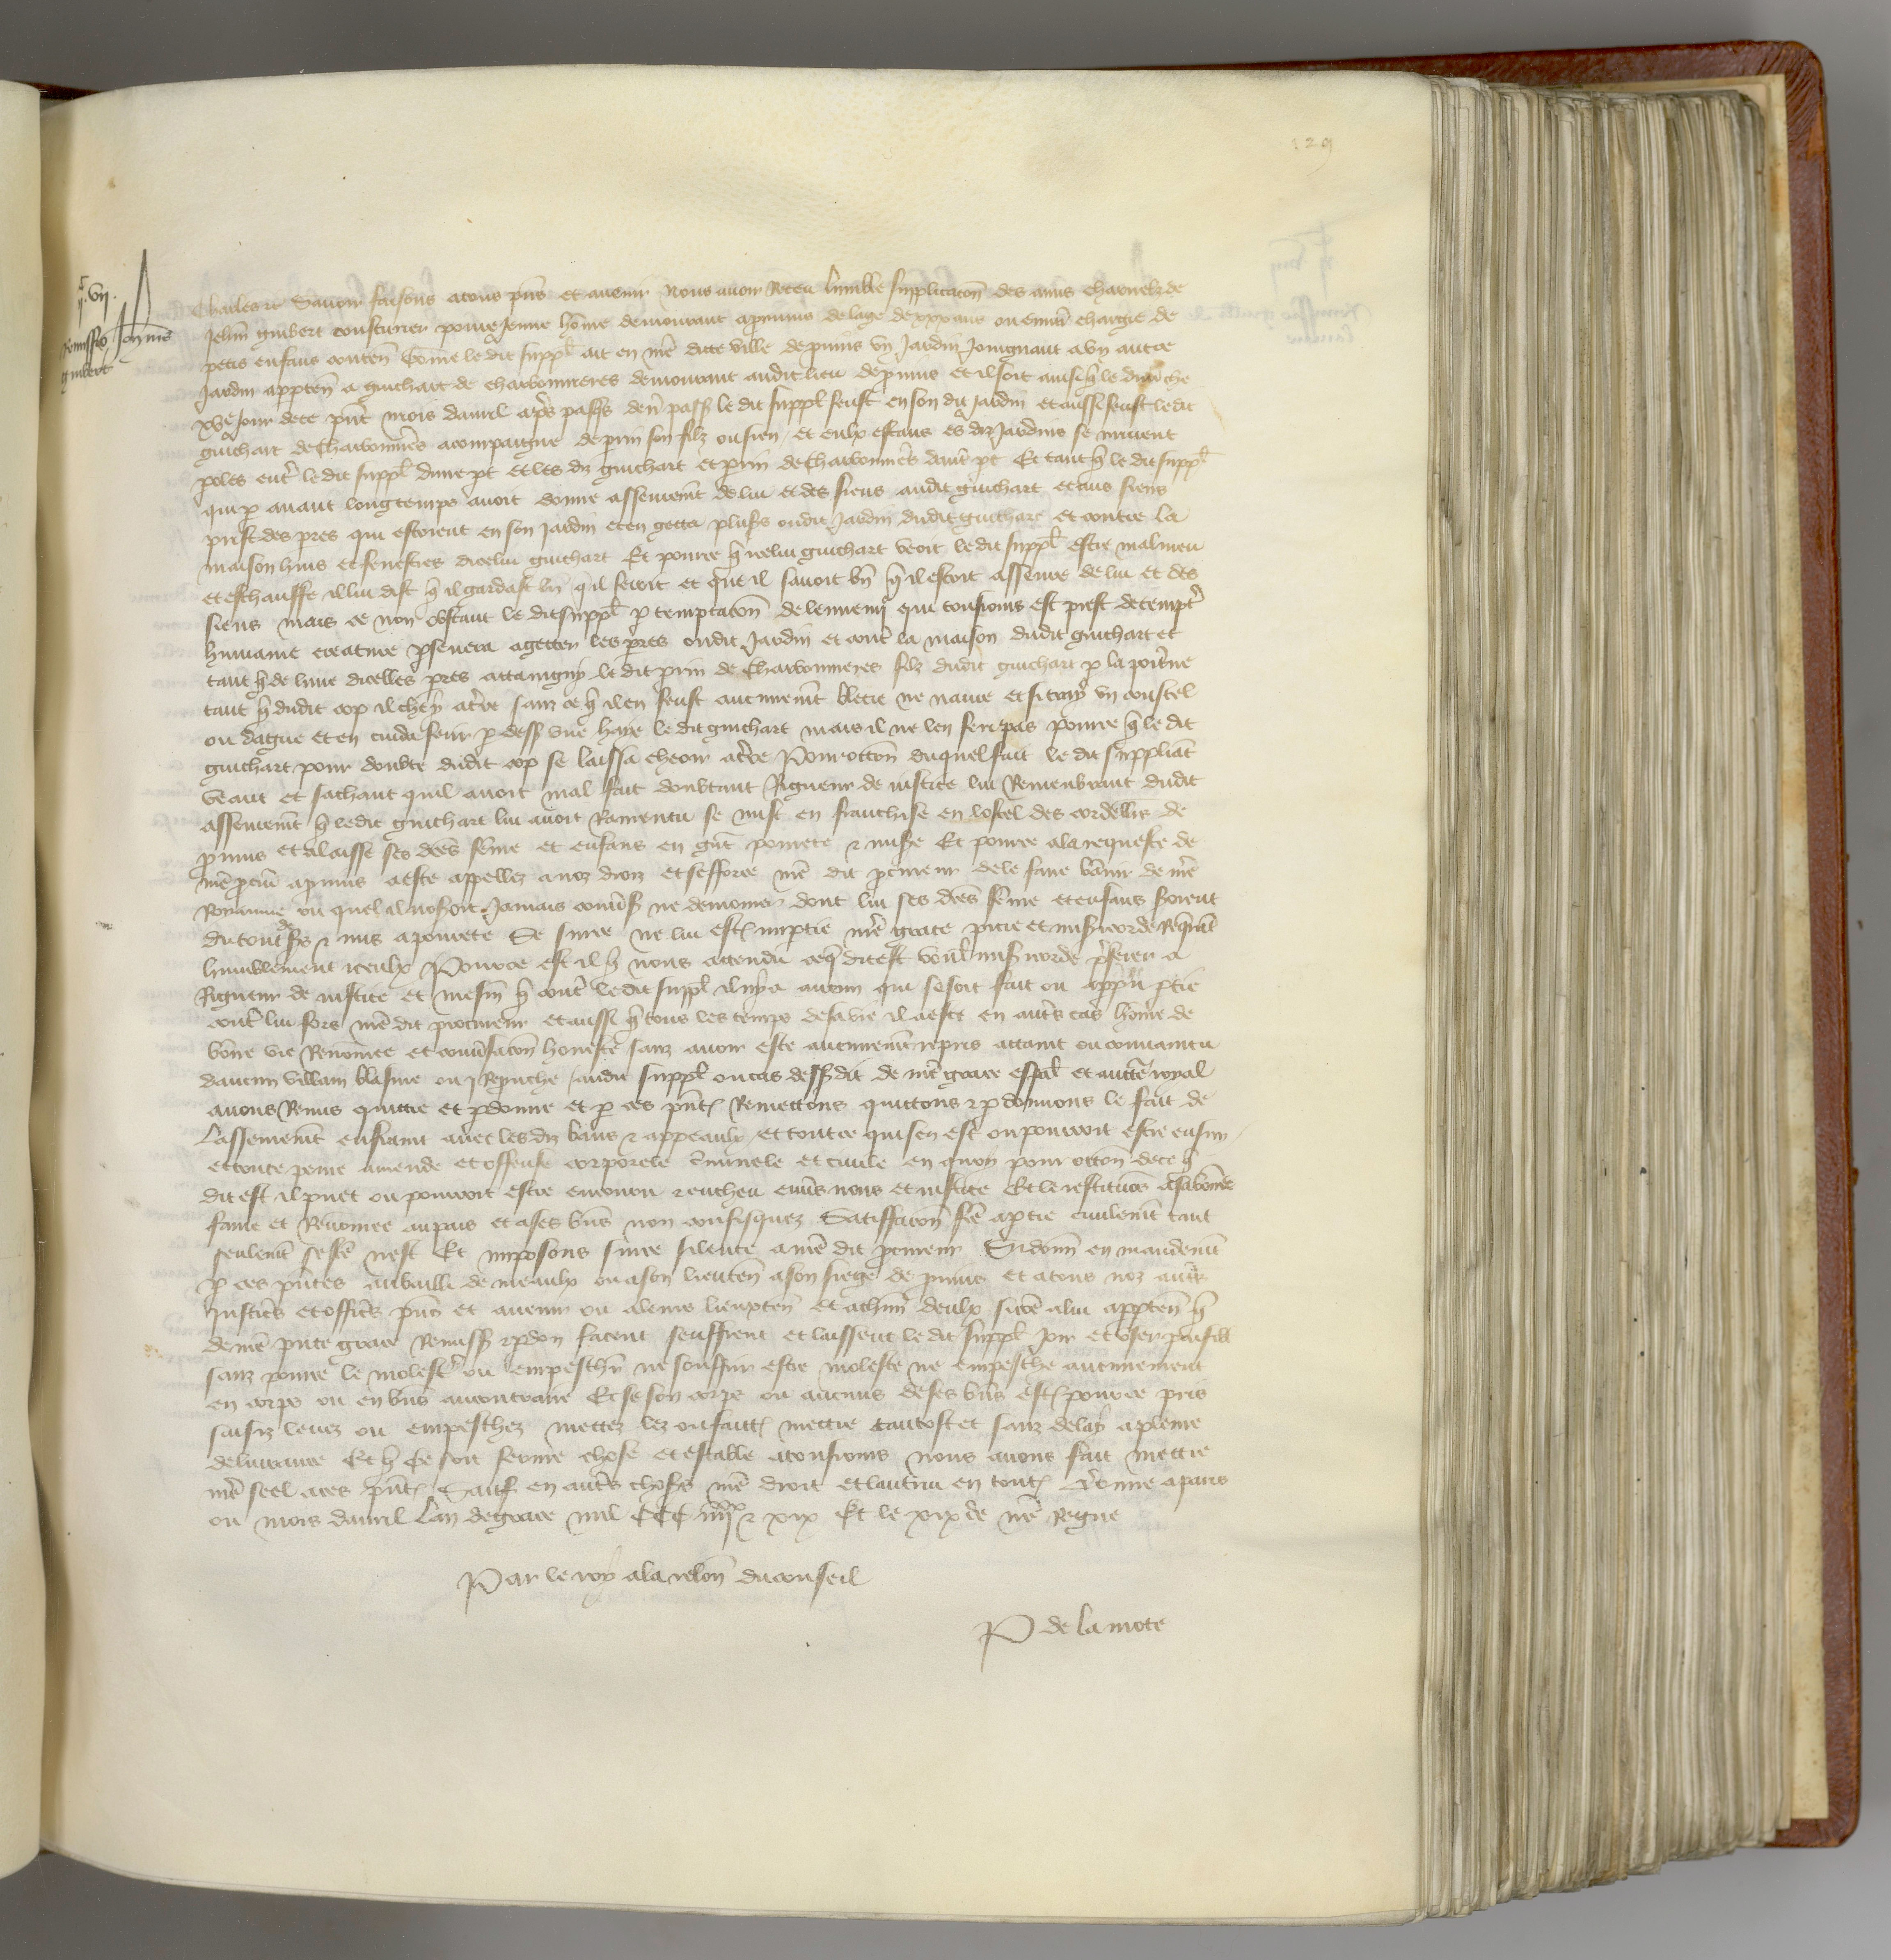 129
c
ij. vij.
Remissio Johannis
guibert
Charles etc Savoir faisons a tous pñs et avenir Nous avoir Receu lumble supplicacoñ des amis charnelz de
Jehañ guibert cousturier povre Jeune hõme demourant a provins de laage de xxx ans ou enviro chargie de
petis enfans conteñ Cõme le dit suppl ait en nrẽ dicte ville de provins vn Jardin Joingnant a vn autre
Jardin apparteñ a guichart de charbonnieres demourant audit lieu de provins et il soit ainsi q̃ le dimẽche
xve Jour de ce pñt mois davril le dit suppl feust en son dit Jardin et aussi feust le dit
guichart de Charbonnieres acompaigne de prin son filz ou sien et eulx estans es diz Jardins se murent
poles entre le dit suppl dune pt et les diz guichart et prin de Charbonnieres dautre pt Et tant q̃ le dit suppl
qui p avant long temps avoit donne assevremẽt de lui et des siens audit guichart et aus siens
prist des pres qui estoient en son Jardin et en getta pluss oudit Jardin dudit guichart et contre la
maison huis et fenestres dicelui guichart Et pource q̃ icelui guichart veoit le dit suppl estre malmeu
et eschauffe il lui dist q̃ il gardast bñ q̃ il feroit et que il savoit bñ q̃ il estoit asseure de lui et des
siens mais ce non obstant le dit suppl p temptacoñ de lennemi qui tousiours est prest de tempter
humaine creature psevera a getter les pres oudit Jardin et contre la maison dudit guichart et
tant q̃ de lune dicelles pres attaingny le dit prin de Charbonnieres filz dudit guichart p la poitrine
tant q̃ dudit cop il cheÿ a trẽ sanz ce q̃ il en feust aucunemẽt blecie ne navre et si tray vn coustel
ou dague et en cuida ferir p dess une haye le dit guichart mais il ne len feri pas pource q̃ le dit
guichart pour doubte dudit cop se laissa cheoir a trẽ Pour occoñ duquel fait le dit suppliãt
veant et sachant quil avoit mal fait doubtant Rigueur de iustice lui Remenbrant dudit
assevremẽt q̃ le dit guichart lui avoit Ramenteu se mist en franchise en lostel des cordelliers de
provins et a laisse ses dẽes fẽme et enfans en gñt povrete & mise Et pource a la requeste de
nrẽ pcureur a provins a este appellez a noz droiz et sefforce nrẽ dit pcureur de le faire bannir de nrẽ
Royaume ou quel il noseroit Jamais convers ne demourer dont lui ses dẽes fẽme et enfans seroient
du tout des & mis a povrete Se sur ce ne lui estoit impartie nrẽ grace pitie et misericorde Requerãt
humblement iceulx Pour ce est il q̃ nous attendu ce q̃ dit est voul misericorde preferer a
Rigueur de iustice et mesm̃ q̃ contre le dit suppl il ny a aucun qui se soit fait ou ptie
contre lui fors nrẽ dit procureur et aussi q̃ tous les temps de sa vie il a este en autres cas hõme de
bõne vie Renõmee et conversacoñ honeste sanz avoir este aucunemẽt repris attaint ou convaincu
daucun villain blasme ou Reprouche / audit suppl ou cas dessusdit de nrẽ grace espal et auctẽ royal
avons Remis quictie et pdonne et p ces pñtes Remettons quittons & pdonnons le fait de
Lassevremẽt enfraint avec les diz bans & appeaulx et tout ce qui sen est ou pourroit estre ensuy
et toute peine amende et offense corporele criminele et civile en quoy pour occoñ de ce q̃
dit est il puet ou pourroit estre encouru & encheu envers nous et iustice Et le restituons a sa bonne
fame et Renõmee au pais et a ses biens non confisquez Satisfacoñ fẽe a ptie civilemẽt tant
seulemẽt se fẽe nest Et imposons sur ce silence a nrẽ dit pcureur Si donñ en mandemẽt
p ces pñtes au bailli de meaulx ou a son lieuteñ a son siege de provins et a tous noz autres
Justicẽs et officẽs pñs et avenir ou a leurs lieuxteñ et a chm̃ deulx si cõe a lui apparteñ q̃
de nrẽ pñte grace Remiss & pdon facent seuffrent et laissent le dit suppl Joir et user paisibl
sanz pource le molester ou empescher ne souffrir estre moleste ne empesche aucunement
en corps ou en biens au contraire Et se son corps ou aucuns de ses biens estoient pource pris
saisiz levez ou empeschez mettez lez ou faites mettre tantost et sanz delay a pleine
delivrance Et q̃ Ce soit ferme chose et estable a tousiours nous avons fait mettre
nrẽ seel a ces pñtes Sauf en autres choses nrẽ droit et lautrui en toutes Dõnne a paris
ou mois davril Lan de grace mil CCC iiijxx & xix Et le xix de nrẽ Regne
Par le roy a la reloñ du conseil
P de la mote